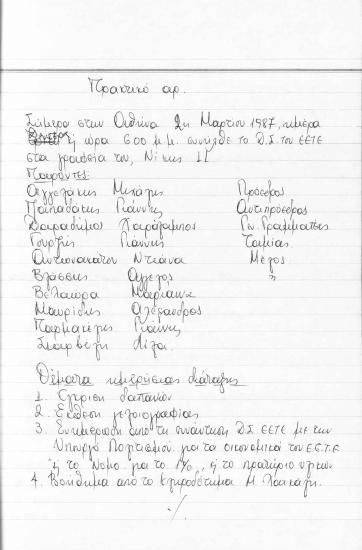 Πρακτικό αρ.
Σήμερα στην Αθήνα 2η Μαρτίου 1987, ημέρα
Δευτέρα ή ώρα 6:00 μ.μ. συνήλθε το Δ.Σ του ΕΕΤΕ
στα γραφεία του, Νίκης 11
Παρόντες:
Αγγελάκης Μιχάλης Πρόεδρος
Παπαδάκης Γιάννης Αντιπρόεδρος
Δαραδήμος Χαράλαμπος Γεν. Γραμματέας
Γουρζής Γιάννης Ταμίας
Αντωνακάτου Ντιάνα Μέλος
Βλάσσης Άγγελος "
Βελαώρα Μαριάννα
Μαυρίδης Αλέξανδρος
Παρμακέλης Γιάννης
Σκαρβέλη Λίζα
Θέματα ημερήσιας διάταξης
1. Έγκριση δαπανών
2. Έκθεση γελοιογραφίας
3. Ενημέρωση από τη συνάντηση Δ.Σ ΕΕΤΕ με την
Υπουργό Πολιτισμού για τα οικονομικά του Ε.Ε.Τ.Ε
ή το Νόμο για το 1%, ή το πρατήριο υλικών
4. Βοήθημα από το κληροδότημα Μ.
./.